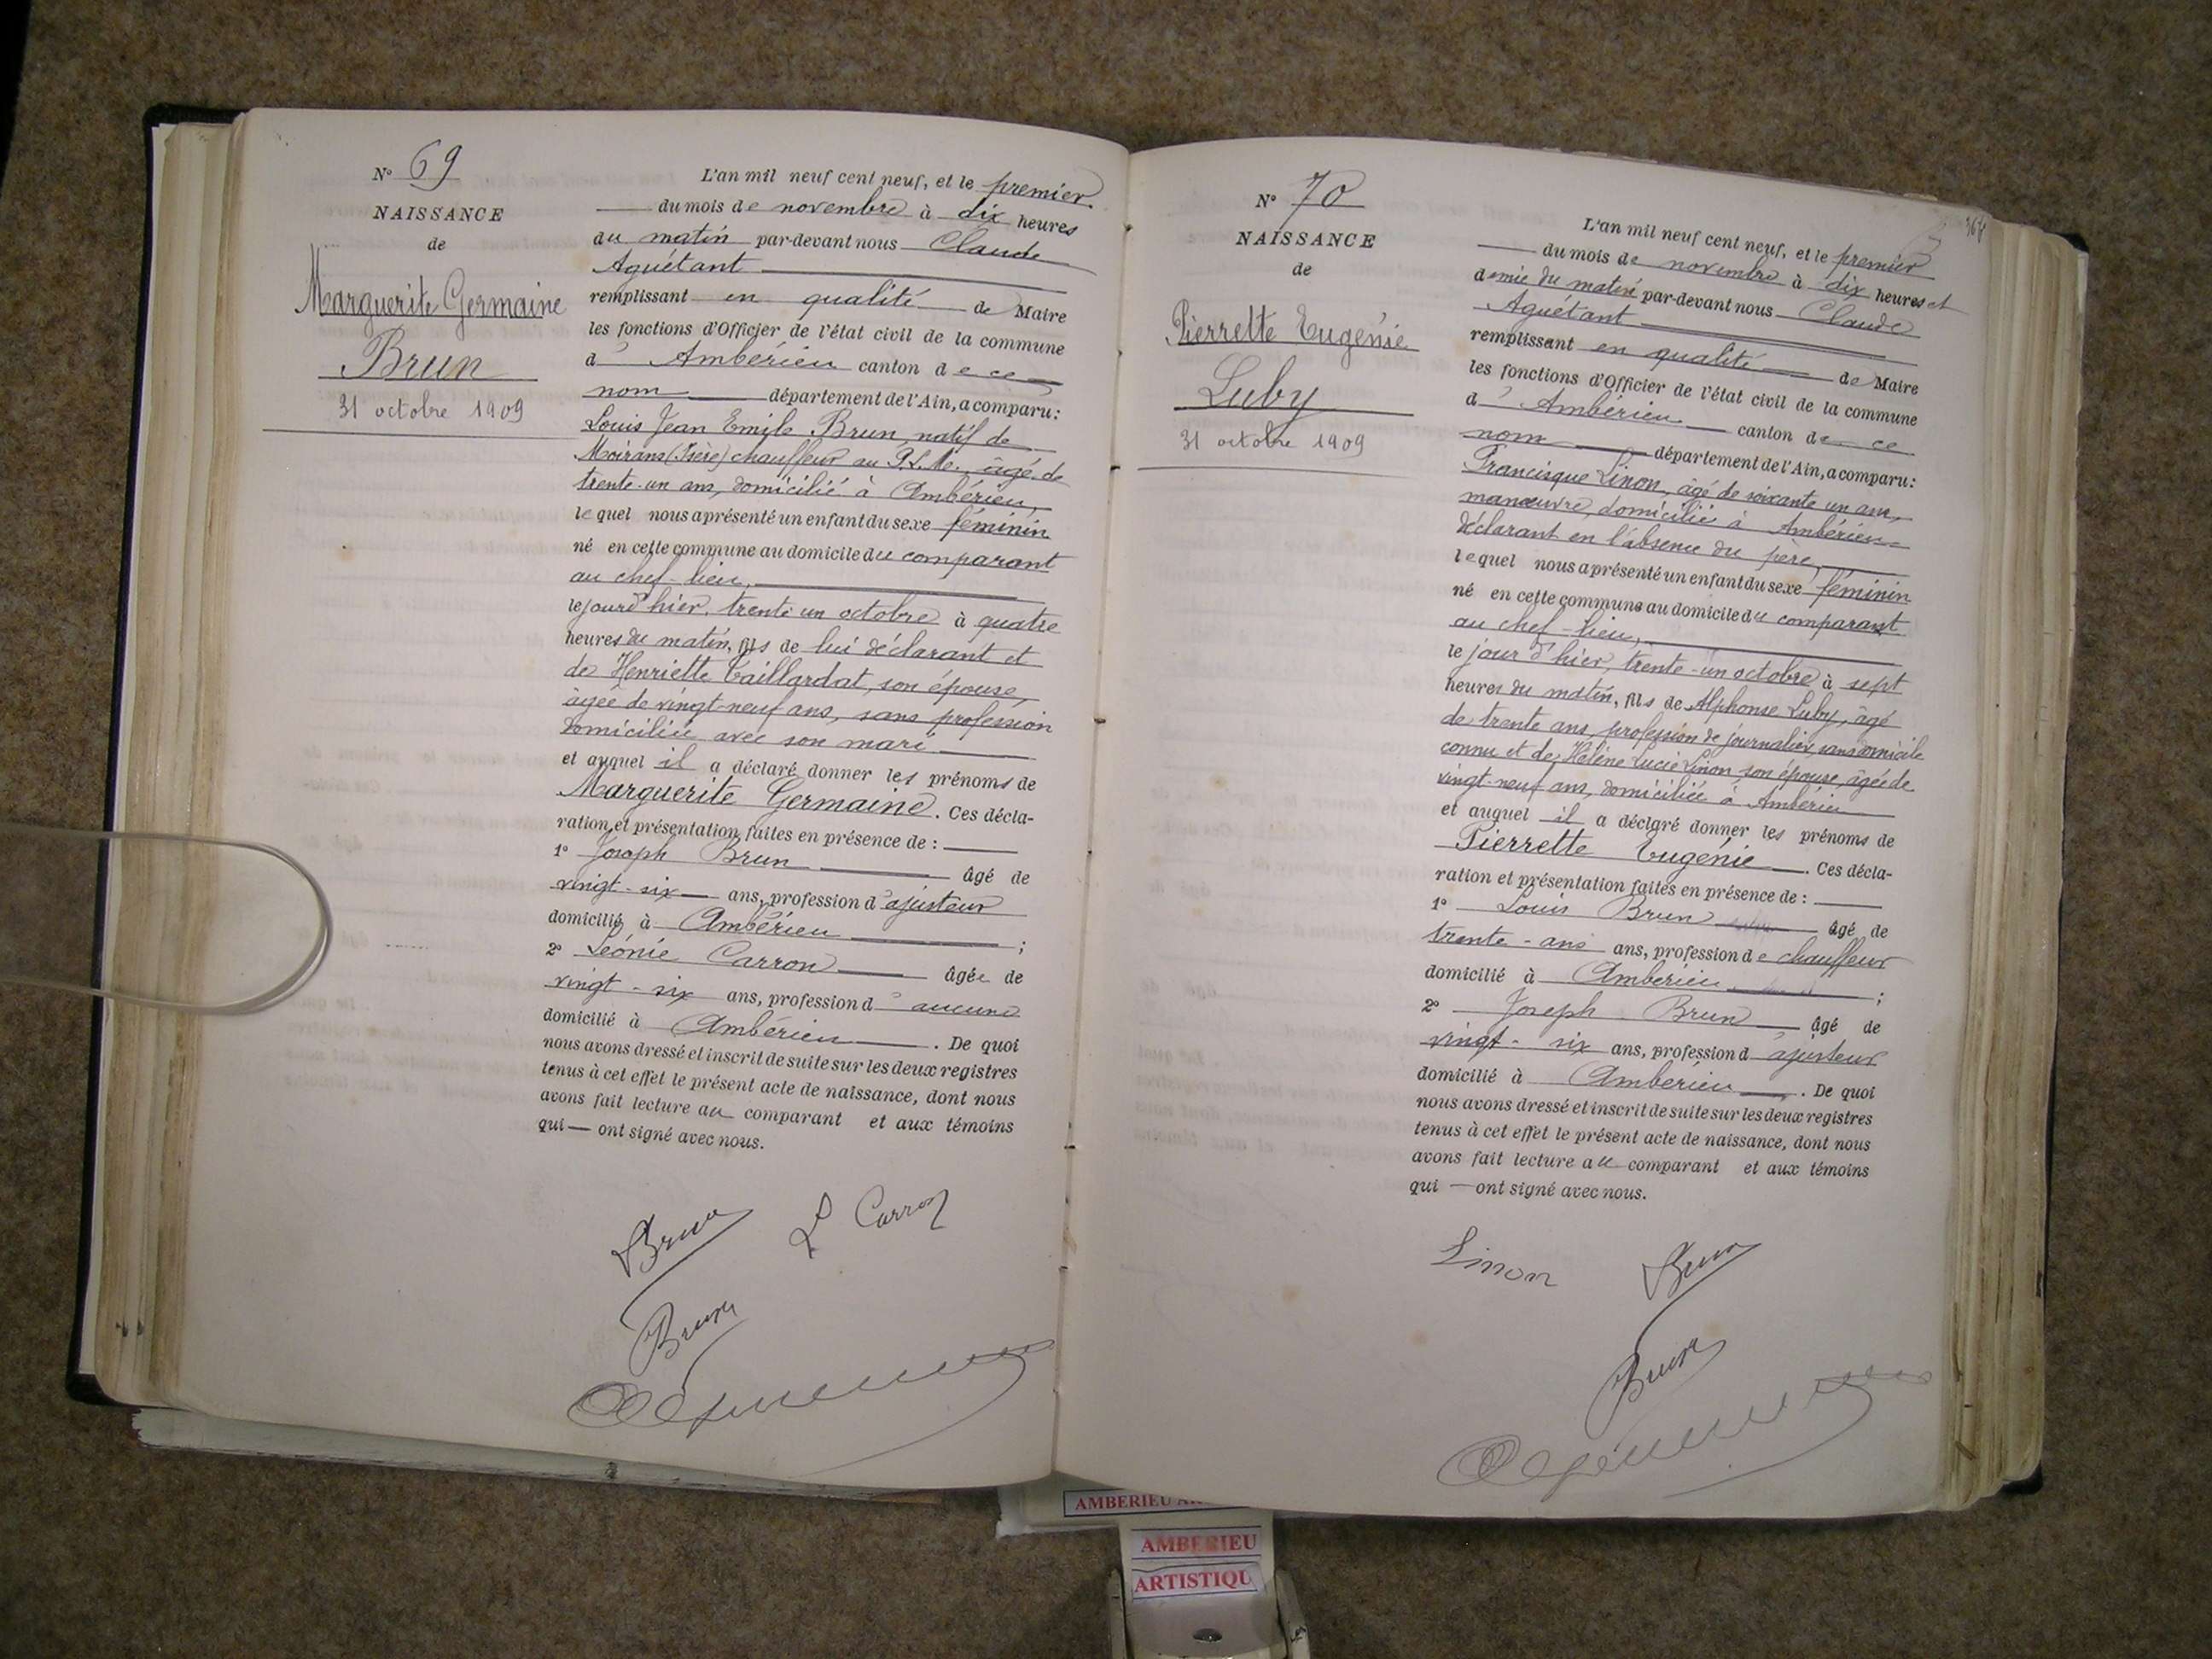 N° 69
NAISSANCE
de
Marguerite Germaine
Brun
31 octobre 1909
L'an mil neuf cent neuf, et le premier
du mois de novembre à dix heures
du matin par-devant nous Claude
Aguétant
remplissant en qualité de Maire
les fonctions d'Officier de l'état civil de la commune
d'Ambérieu canton de ce
nom département de l'Ain, a comparu:
Louis Jean Emile Brun, natif de
Moirans (Isère) chauffeur au P.L.M., âgé de
trente-un ans, domicilié à Ambérieu,
lequel nous a présenté un enfant du sexe féminin
né en cette commune au domicile du comparant
au chef-lieu,
le jour d'hier, trente-un octobre à quatre
heures du matin, fils de lui déclarant et
de Henriette Taillardat, son épouse,
âgée de vingt-neuf ans, sans profession
domiciliée avec son mari
et auquel il a déclaré donner les prénoms de
Marguerite Germaine. Ces décla-
ration et présentation faites en présence de :
1° Joseph Brun âgé de
vingt-six ans, profession d'ajusteur
domicilié à Ambérieu ;
2° Léonie Carron âgée de
vingt-six ans, profession d'aucune
domicilié à Ambérieu. De quoi
nous avons dressé et inscrit de suite sur les deux registres
tenus à cet effet le présent acte de naissance, dont nous
avons fait lecture au comparant et aux témoins
qui — ont signé avec nous.
Brun L Carron
Brun
N° 70
NAISSANCE
de
Pierrette Eugénie
Luby
31 octobre 1909
L'an mil neuf cent neuf, et le premier
du mois de novembre à dix heures et
demie du matin par-devant nous Claude
Aguétant
remplissant en qualité de Maire
les fonctions d'Officier de l'état civil de la commune
d'Ambérieu canton de ce
nom département de l'Ain, a comparu:
Francisque Linon, âgé de soixante un ans,
manœuvre, domicilié à Ambérieu
déclarant en l'absence du père,
lequel nous a présenté un enfant du sexe féminin
né en cette commune au domicile du comparant
au chef-lieu,
le jour d'hier, trente-un octobre à sept
heures du matin, fils de Alphonse Luby, âgé
de trente ans, profession de journalier, sans domicile
connu et de Hélène Lucie Linon son épouse, âgée de
vingt-neuf ans, domiciliée à Ambérieu
et auquel il a déclaré donner les prénoms de
Pierrette Eugénie. Ces décla-
ration et présentation faites en présence de :
1° Louis Brun âgé de
trente-ans ans, profession de chauffeur
domicilié à Ambérieu ;
2° Joseph Brun âgé de
vingt-six ans, profession d'ajusteur
domicilié à Ambérieu. De quoi
nous avons dressé et inscrit de suite sur les deux registres
tenus à cet effet le présent acte de naissance, dont nous
avons fait lecture au comparant et aux témoins
qui — ont signé avec nous.
Linon Brun
Brun
AMBERIEU
AMBERIEU
ARTISTIQU